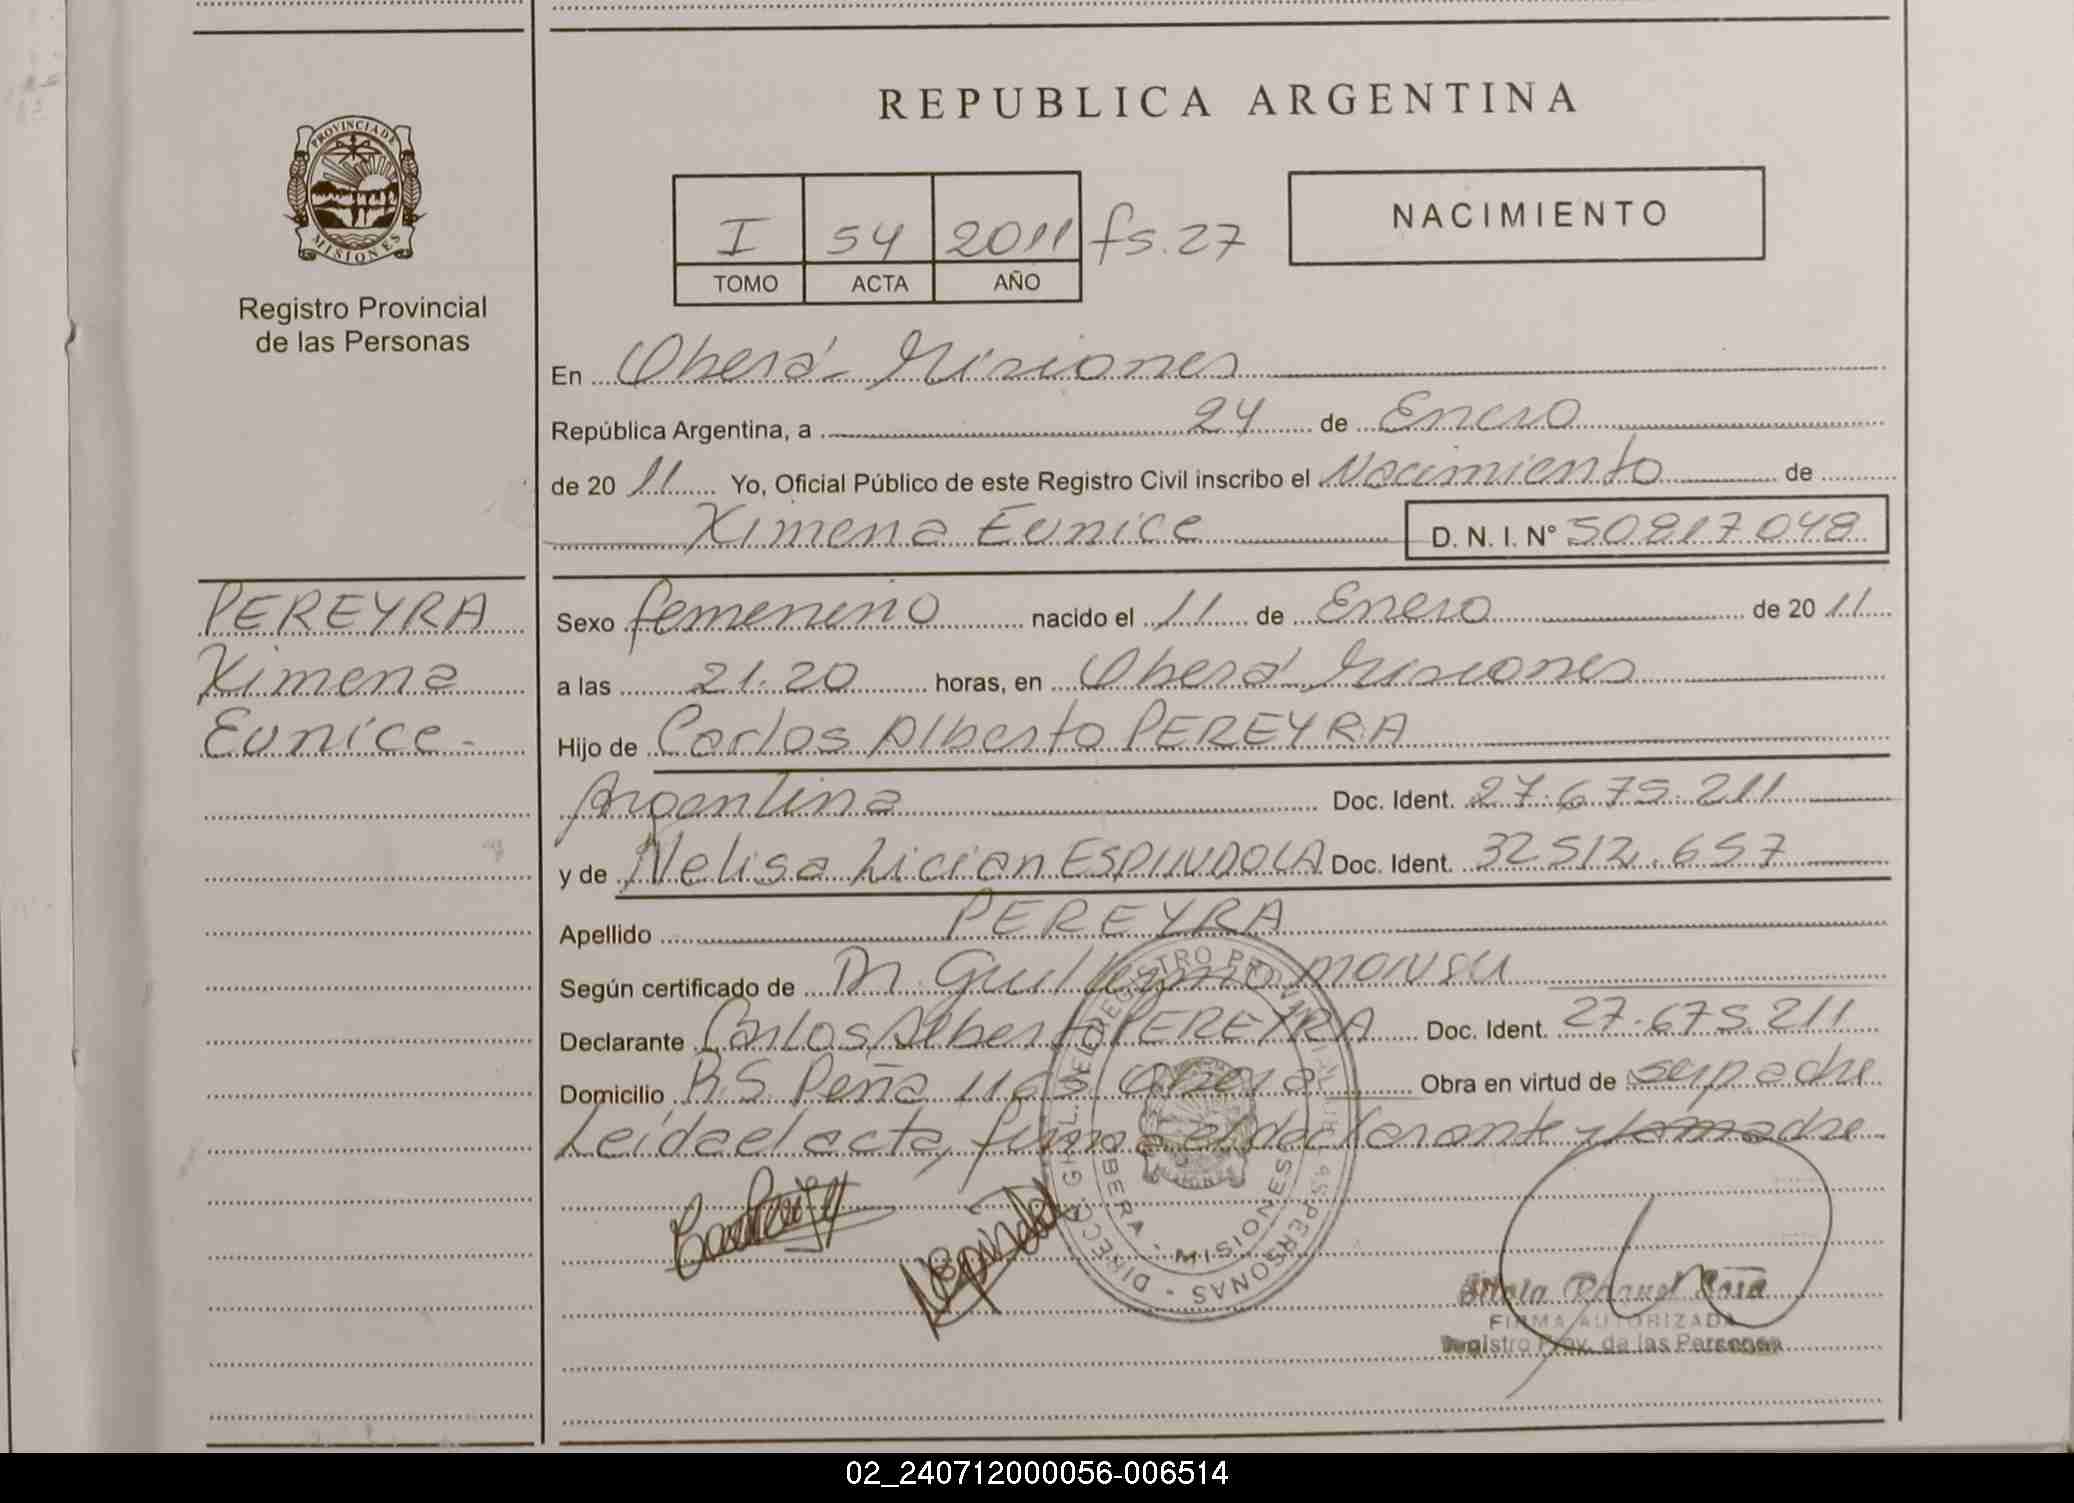 REPUBLICA ARGENTINA
PROVINCIA DE MISIONES
Registro Provincial
de las Personas
I 54 2011 fs. 27
TOMO ACTA AÑO
NACIMIENTO
En Oberá - Misiones
República Argentina, a 24 de Enero
de 20 11 Yo, Oficial Público de este Registro Civil inscribo el Nacimiento de
Ximena Eunice D. N. I. N° 50817048
PEREYRA
Ximena
Eunice.-
Sexo femenino nacido el 11 de Enero de 20 11
a las 21.20 horas, en Oberá Misiones
Hijo de Carlos Alberto PEREYRA
Argentina Doc. Ident. 27.675.211
y de Nelisa Lician ESPINDOLA Doc. Ident. 32512.657
Apellido PEREYRA
Según certificado de Dr. Guillermo MONSU
Declarante Carlos Alberto PEREYRA Doc. Ident. 27.675 211
Domicilio R.S. Peña 1165 Oberá Obra en virtud de ser padre
Leída el acta, firma el declarante y la madre
DIRECC. GRAL. DEL REGISTRO PROVINCIAL DE LAS PERSONAS
OBERA - MISIONES
Raquel
FIRMA AUTORIZADA
Registro Prov. de las Personas
02_240712000056-006514